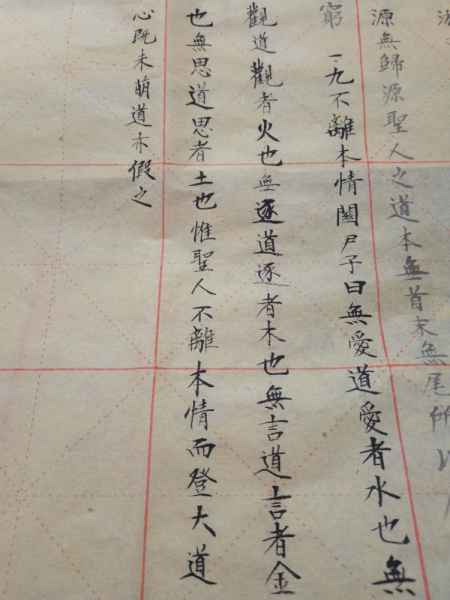 源無歸源聖人之道本無首末無尾所以
窮 一·九不離本情關尹子曰無愛道愛者水也無
觀道觀者火也無逐道逐者木也無言道言者金
也無思道思者土也惟聖人不離本情而登大道
心既未萌道亦假之